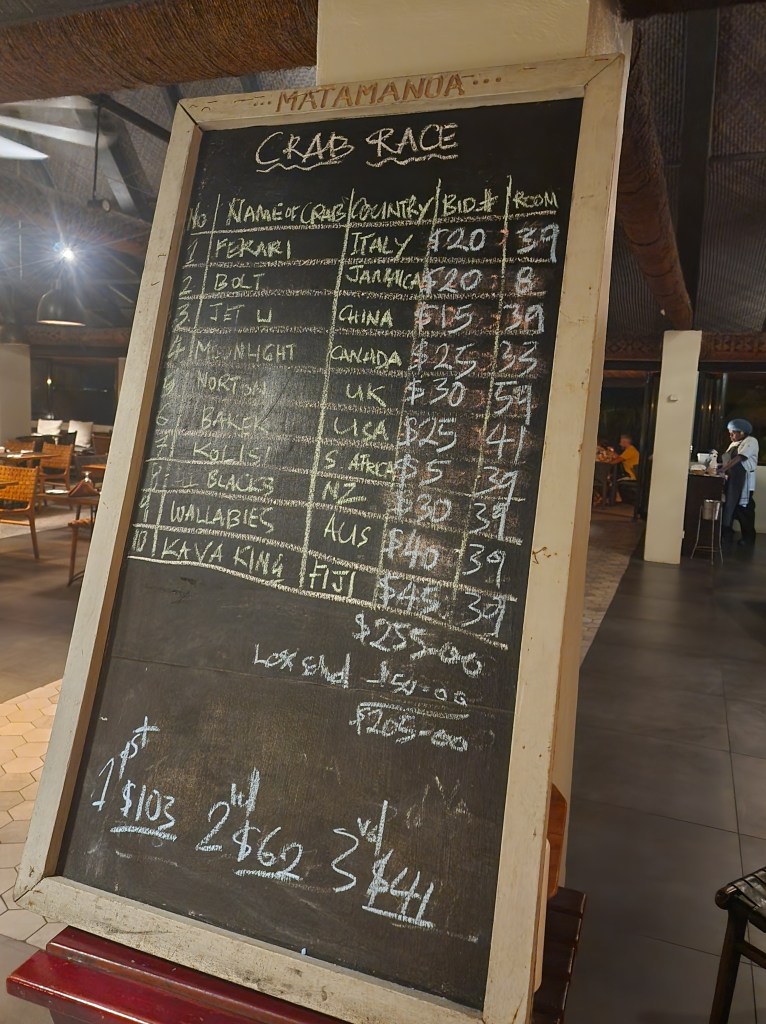 ... MATAMANOA ...
CRAB RACE
No NAME OF CRAB COUNTRY BID # ROOM
1 FERARI ITALY $20 39
2 BOLT JAMAICA $20 8
3 JET LI CHINA $15 39
4 MOONLIGHT CANADA $25 33
5 NORTON UK $30 59
6 BAKER USA $25 41
7 KOLISI S AFRICA $5 39
8 BLACKS NZ $30 39
9 WALLABIES AUS $40 39
10 KAVA KING FIJI $45 39
$255-00
$50-00
$205-00
1st $103 2nd $62 3rd $41